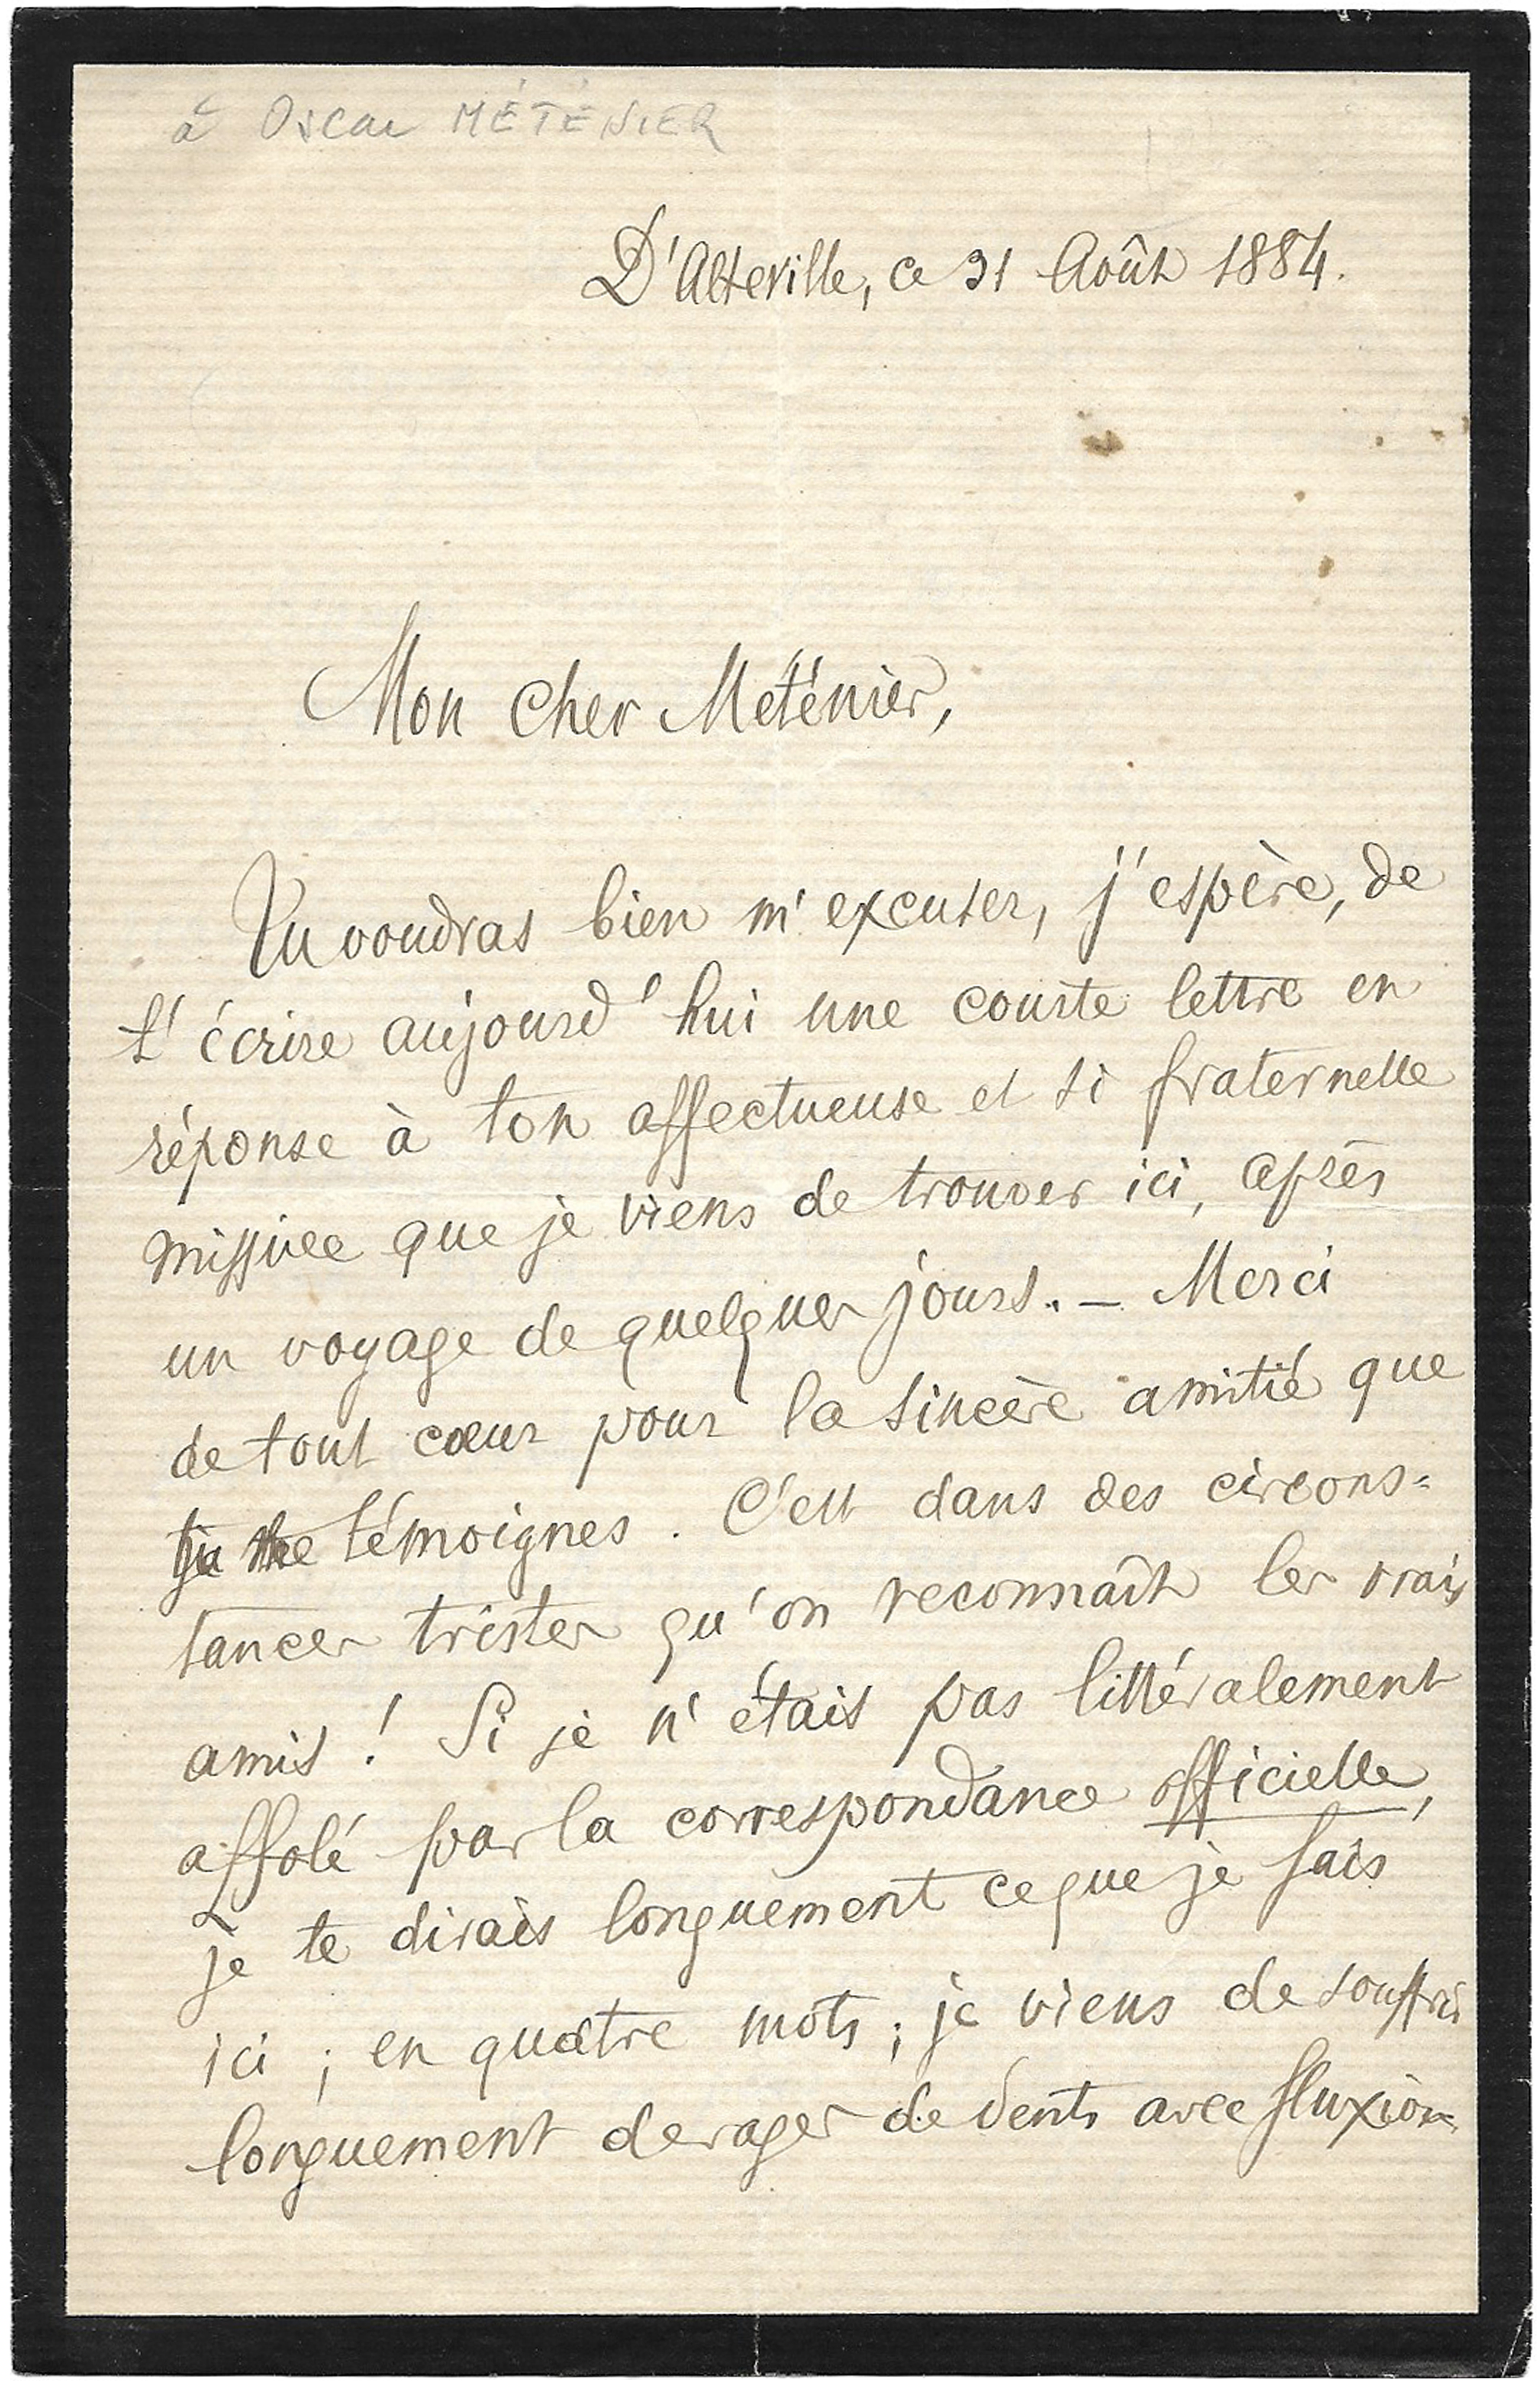 à Oscar MÉTÉNIER
D'Alteville, ce 31 Août 1884.
Mon cher Méténier,
Tu voudras bien m'excuser, j'espère, de
t'écrire aujourd'hui une courte lettre en
réponse à ton affectueuse et si fraternelle
missive que je viens de trouver ici, après
un voyage de quelques jours. — Merci
de tout cœur pour la sincère amitié que
tu me témoignes. C'est dans des circons=
tances tristes qu'on reconnaît les vrais
amis ! Si je n'étais pas littéralement
affolé par la correspondance officielle,
je te dirais longuement ce que je fais
ici ; en quatre mots ; je viens de souffrir
longuement de rages de dents avec fluxion